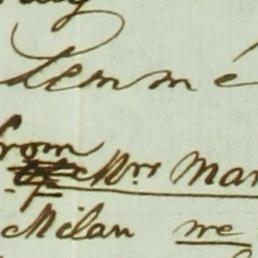 Lemmé
from
Mrs Mar
Milan we